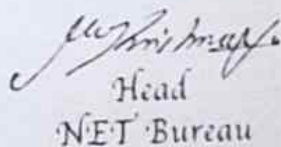 Head
N·E·T Bureau